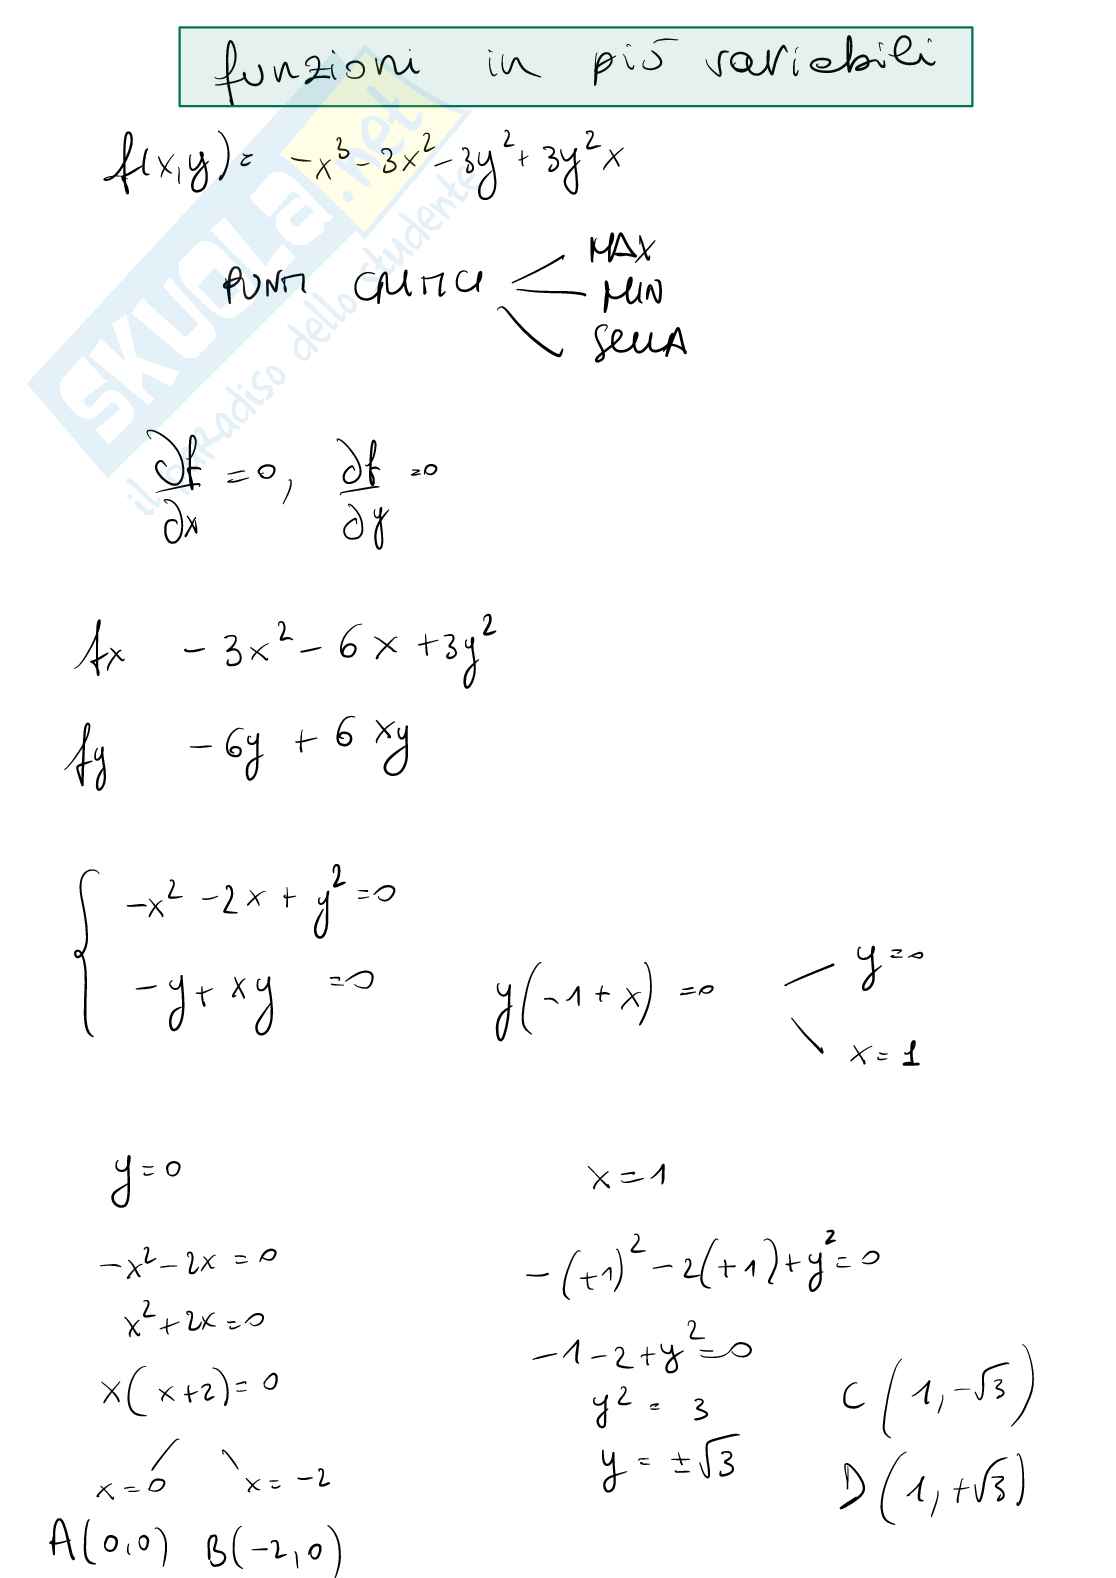 funzioni in più variabili
f(x,y)= -x³-3x²-3y²+3y²x
PUNTI CRITICI
MAX
MIN
SELLA
∂f/∂x =0, ∂f/∂y =0
fx -3x²-6x+3y²
fy -6y+6xy
-x²-2x+y²=0
-y+xy =0 y(-1+x)=0
y=0
x=1
y=0
-x²-2x=0
x²+2x=0
x(x+2)=0
x=0 x=-2
A(0,0) B(-2,0)
x=1
-(+1)²-2(+1)+y²=0
-1-2+y²=0
y²=3
y=±√3
C(1,-√3)
D(1,+√3)
SKUOLA.net
il paradiso dello studente